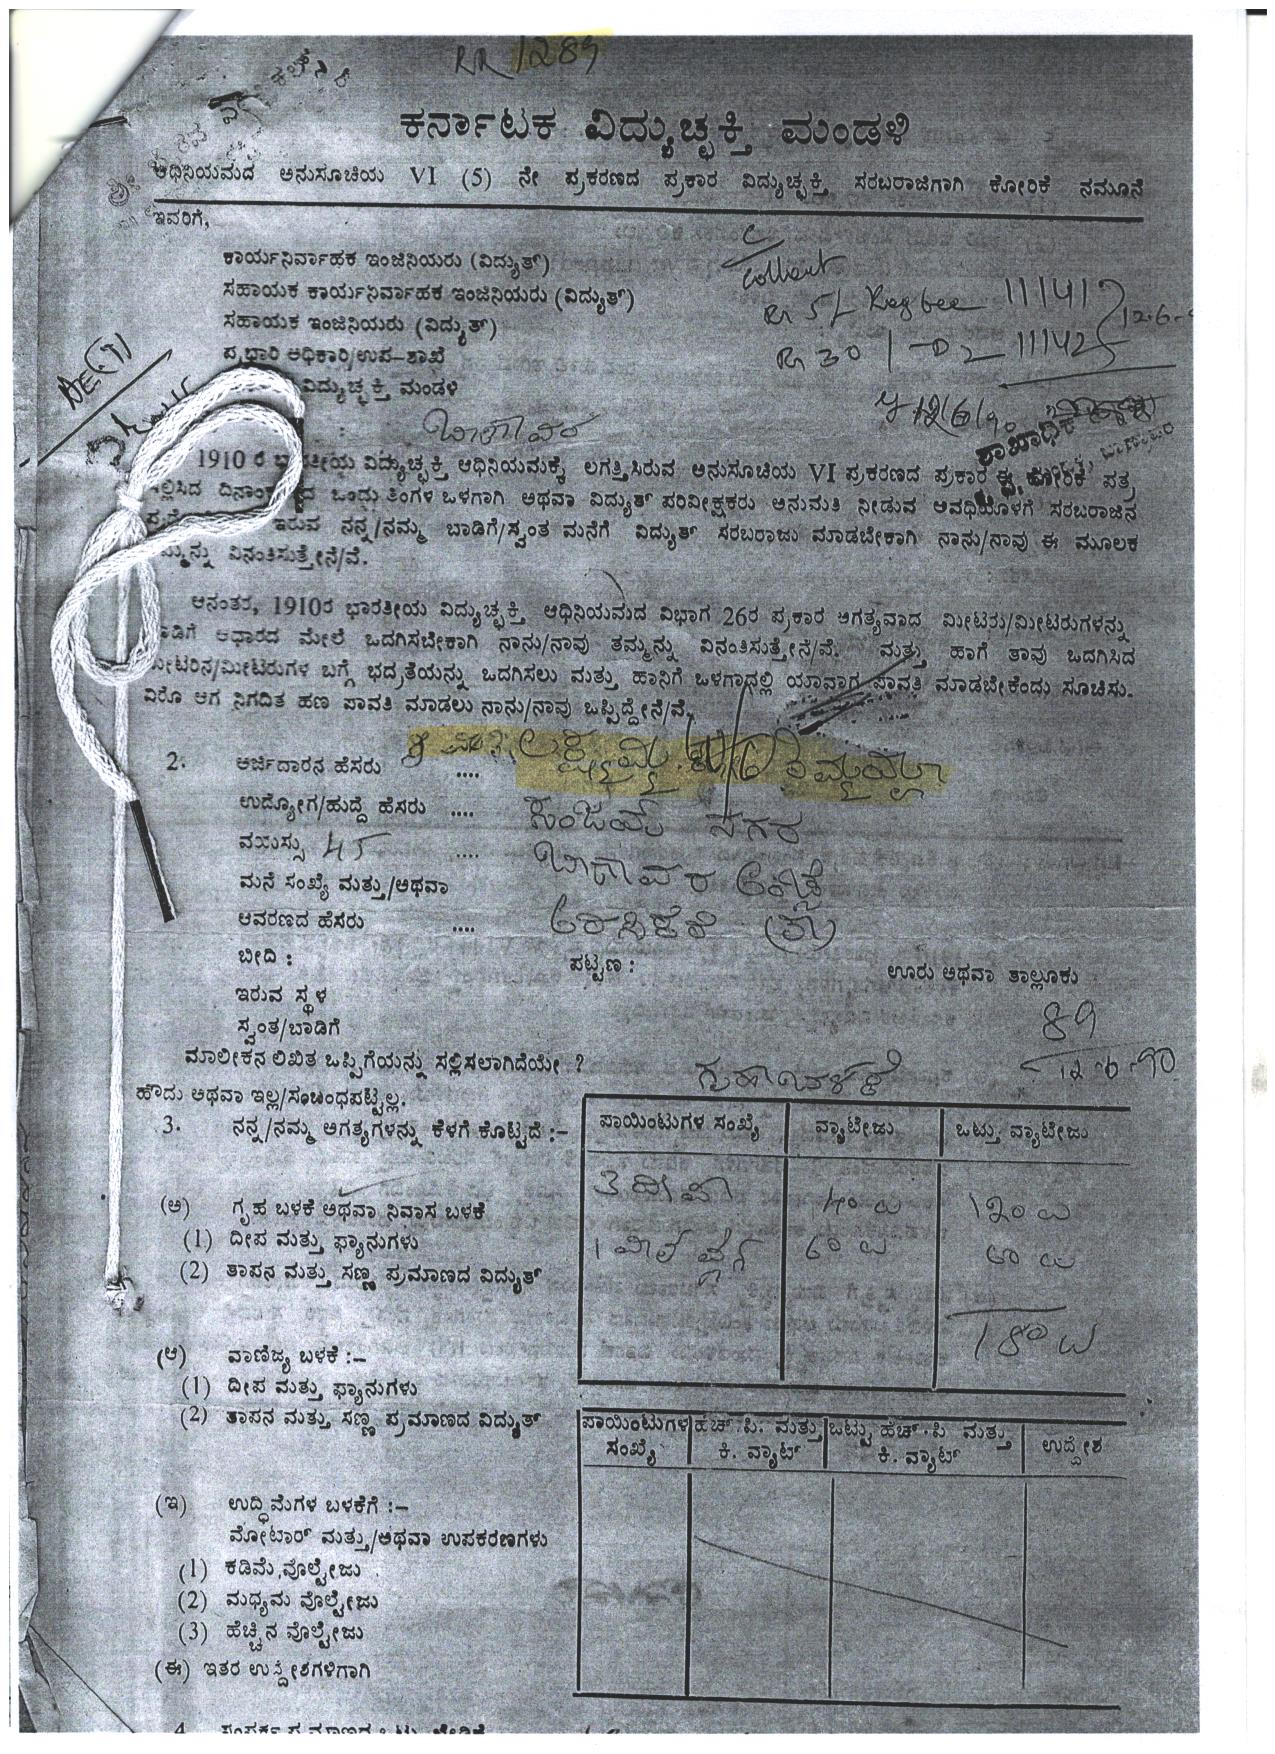 RR 1289
ಕರ್ನಾಟಕ ವಿದ್ಯುಚ್ಛಕ್ತಿ ಮಂಡಳಿ
ಅಧಿನಿಯಮದ ಅನುಸೂಚಿಯ VI (5) ನೇ ಪ್ರಕರಣದ ಪ್ರಕಾರ ವಿದ್ಯುಚ್ಛಕ್ತಿ ಸರಬರಾಜಿಗಾಗಿ ಕೋರಿಕೆ ನಮೂನೆ
ಇವರಿಗೆ,
ಕಾರ್ಯನಿರ್ವಾಹಕ ಇಂಜಿನಿಯರು (ವಿದ್ಯುತ್)
ಸಹಾಯಕ ಕಾರ್ಯನಿರ್ವಾಹಕ ಇಂಜಿನಿಯರು (ವಿದ್ಯುತ್)
ಸಹಾಯಕ ಇಂಜಿನಿಯರು (ವಿದ್ಯುತ್)
ಪ್ರಭಾರಿ ಅಧಿಕಾರಿ/ಉಪ-ಶಾಖೆ
ವಿದ್ಯುಚ್ಛಕ್ತಿ ಮಂಡಳಿ
Collect
Rs 5/- Reg fee 111141
Rs 30 1-02 111142
12-6-
ಬಾಣಾವರ
1910 ರ ಭಾರತೀಯ ವಿದ್ಯುಚ್ಛಕ್ತಿ ಅಧಿನಿಯಮಕ್ಕೆ ಲಗತ್ತಿಸಿರುವ ಅನುಸೂಚಿಯ VI ಪ್ರಕರಣದ ಪ್ರಕಾರ ಈ ಕೋರಿಕೆ ಪತ್ರ
ಲ್ಲಿಸಿದ ದಿನಾಂ ದ ಒಂದು ತಿಂಗಳ ಒಳಗಾಗಿ ಅಥವಾ ವಿದ್ಯುತ್ ಪರಿವೀಕ್ಷಕರು ಅನುಮತಿ ನೀಡುವ ಅವಧಿಯೊಳಗೆ ಸರಬರಾಜಿನ
ಇರುವ ನನ್ನ/ನಮ್ಮ ಬಾಡಿಗೆ/ಸ್ವಂತ ಮನೆಗೆ ವಿದ್ಯುತ್ ಸರಬರಾಜು ಮಾಡಬೇಕಾಗಿ ನಾನು/ನಾವು ಈ ಮೂಲಕ
ಮ್ಮನ್ನು ವಿನಂತಿಸುತ್ತೇನೆ/ವೆ.
ಆನಂತರ, 1910ರ ಭಾರತೀಯ ವಿದ್ಯುಚ್ಛಕ್ತಿ ಅಧಿನಿಯಮದ ವಿಭಾಗ 26ರ ಪ್ರಕಾರ ಅಗತ್ಯವಾದ ಮೀಟರು/ಮೀಟರುಗಳನ್ನು
ಾಡಿಗೆ ಆಧಾರದ ಮೇಲೆ ಒದಗಿಸಬೇಕಾಗಿ ನಾನು/ನಾವು ತಮ್ಮನ್ನು ವಿನಂತಿಸುತ್ತೇನೆ/ವೆ. ಮತ್ತು ಹಾಗೆ ತಾವು ಒದಗಿಸಿದ
ೀಟರಿನ/ಮೀಟರುಗಳ ಬಗ್ಗೆ ಭದ್ರತೆಯನ್ನು ಒದಗಿಸಲು ಮತ್ತು ಹಾನಿಗೆ ಒಳಗಾದಲ್ಲಿ ಯಾವಾಗ ಪಾವತಿ ಮಾಡಬೇಕೆಂದು ಸೂಚಿಸು.
ವಿರೊ ಆಗ ನಿಗದಿತ ಹಣ ಪಾವತಿ ಮಾಡಲು ನಾನು/ನಾವು ಒಪ್ಪಿದ್ದೇನೆ/ವೆ.
2. ಅರ್ಜಿದಾರನ ಹೆಸರು .... ಲಕ್ಷ್ಮಮ್ಮ
ಉದ್ಯೋಗ/ಹುದ್ದೆ ಹೆಸರು .... ಸಂಜಯ ನಗರ
ವಯಸ್ಸು 45 .... ಬಾಣಾವರ ಅಂಚೆ
ಮನೆ ಸಂಖ್ಯೆ ಮತ್ತು/ಅಥವಾ
ಆವರಣದ ಹೆಸರು .... ಅರಸೀಕೆರೆ (ತಾ)
ಬೀದಿ : ಪಟ್ಟಣ : ಊರು ಅಥವಾ ತಾಲ್ಲೂಕು
ಇರುವ ಸ್ಥಳ
ಸ್ವಂತ/ಬಾಡಿಗೆ
89
12-6-90
ಮಾಲೀಕನ ಲಿಖಿತ ಒಪ್ಪಿಗೆಯನ್ನು ಸಲ್ಲಿಸಲಾಗಿದೆಯೇ ?
ಗೃಹಬಳಕೆ
ಹೌದು ಅಥವಾ ಇಲ್ಲ/ಸಂಬಂಧಪಟ್ಟಿಲ್ಲ.
3. ನನ್ನ/ನಮ್ಮ ಅಗತ್ಯಗಳನ್ನು ಕೆಳಗೆ ಕೊಟ್ಟಿದೆ :-
ಪಾಯಿಂಟುಗಳ ಸಂಖ್ಯೆ ವ್ಯಾಟೇಜು ಒಟ್ಟು ವ್ಯಾಟೇಜು
3 ದೀಪ 40 ವ 120 ವ
60 ವ 60 ವ
180 ವ
(ಅ) ಗೃಹ ಬಳಕೆ ಅಥವಾ ನಿವಾಸ ಬಳಕೆ
(1) ದೀಪ ಮತ್ತು ಫ್ಯಾನುಗಳು
(2) ತಾಪನ ಮತ್ತು ಸಣ್ಣ ಪ್ರಮಾಣದ ವಿದ್ಯುತ್
(ಆ) ವಾಣಿಜ್ಯ ಬಳಕೆ :-
(1) ದೀಪ ಮತ್ತು ಫ್ಯಾನುಗಳು
(2) ತಾಪನ ಮತ್ತು ಸಣ್ಣ ಪ್ರಮಾಣದ ವಿದ್ಯುತ್
ಪಾಯಿಂಟುಗಳ ಸಂಖ್ಯೆ ಹೆಚ್.ಪಿ. ಮತ್ತು ಕಿ. ವ್ಯಾಟ್ ಒಟ್ಟು ಹೆಚ್.ಪಿ ಮತ್ತು ಕಿ. ವ್ಯಾಟ್ ಉದ್ದೇಶ
(ಇ) ಉದ್ದಿಮೆಗಳ ಬಳಕೆಗೆ :-
ಮೋಟಾರ್ ಮತ್ತು/ಅಥವಾ ಉಪಕರಣಗಳು
(1) ಕಡಿಮೆ ವೊಲ್ಟೇಜು
(2) ಮಧ್ಯಮ ವೊಲ್ಟೇಜು
(3) ಹೆಚ್ಚಿನ ವೊಲ್ಟೇಜು
(ಈ) ಇತರ ಉದ್ದೇಶಗಳಿಗಾಗಿ